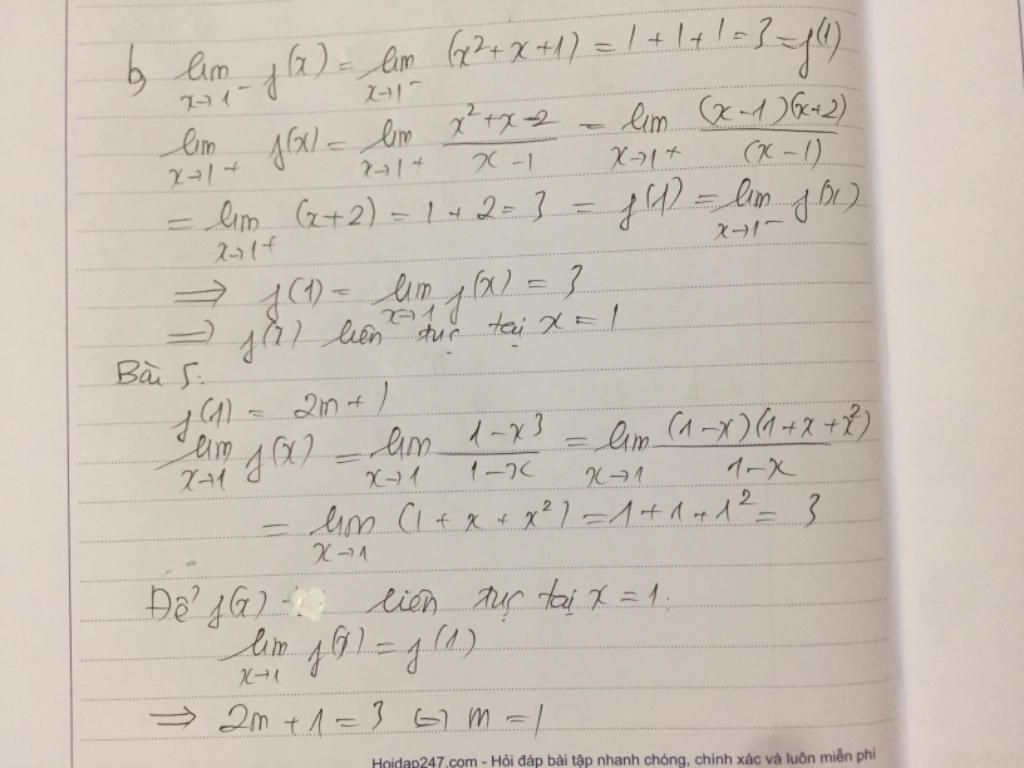 b, lim x→1⁻ f(x) = lim x→1⁻ (x² + x + 1) = 1 + 1 + 1 = 3 = f(1)
lim x→1⁺ f(x) = lim x→1⁺ (x² + x - 2)/(x - 1) = lim x→1⁺ (x - 1)(x + 2)/(x - 1)
= lim x→1⁺ (x + 2) = 1 + 2 = 3 = f(1) = lim x→1⁻ f(x)
⇒ f(1) = lim x→1 f(x) = 3
⇒ f(x) liên tục tại x = 1
Bài 5:
f(1) = 2m + 1
lim x→1 f(x) = lim x→1 (1 - x³)/(1 - x) = lim x→1 (1 - x)(1 + x + x²)/(1 - x)
= lim x→1 (1 + x + x²) = 1 + 1 + 1² = 3
Để f(x) liên tục tại x = 1.
lim x→1 f(x) = f(1)
⇒ 2m + 1 = 3 ⇔ m = 1
Hoidap247.com - Hỏi đáp bài tập nhanh chóng, chính xác và luôn miễn phí